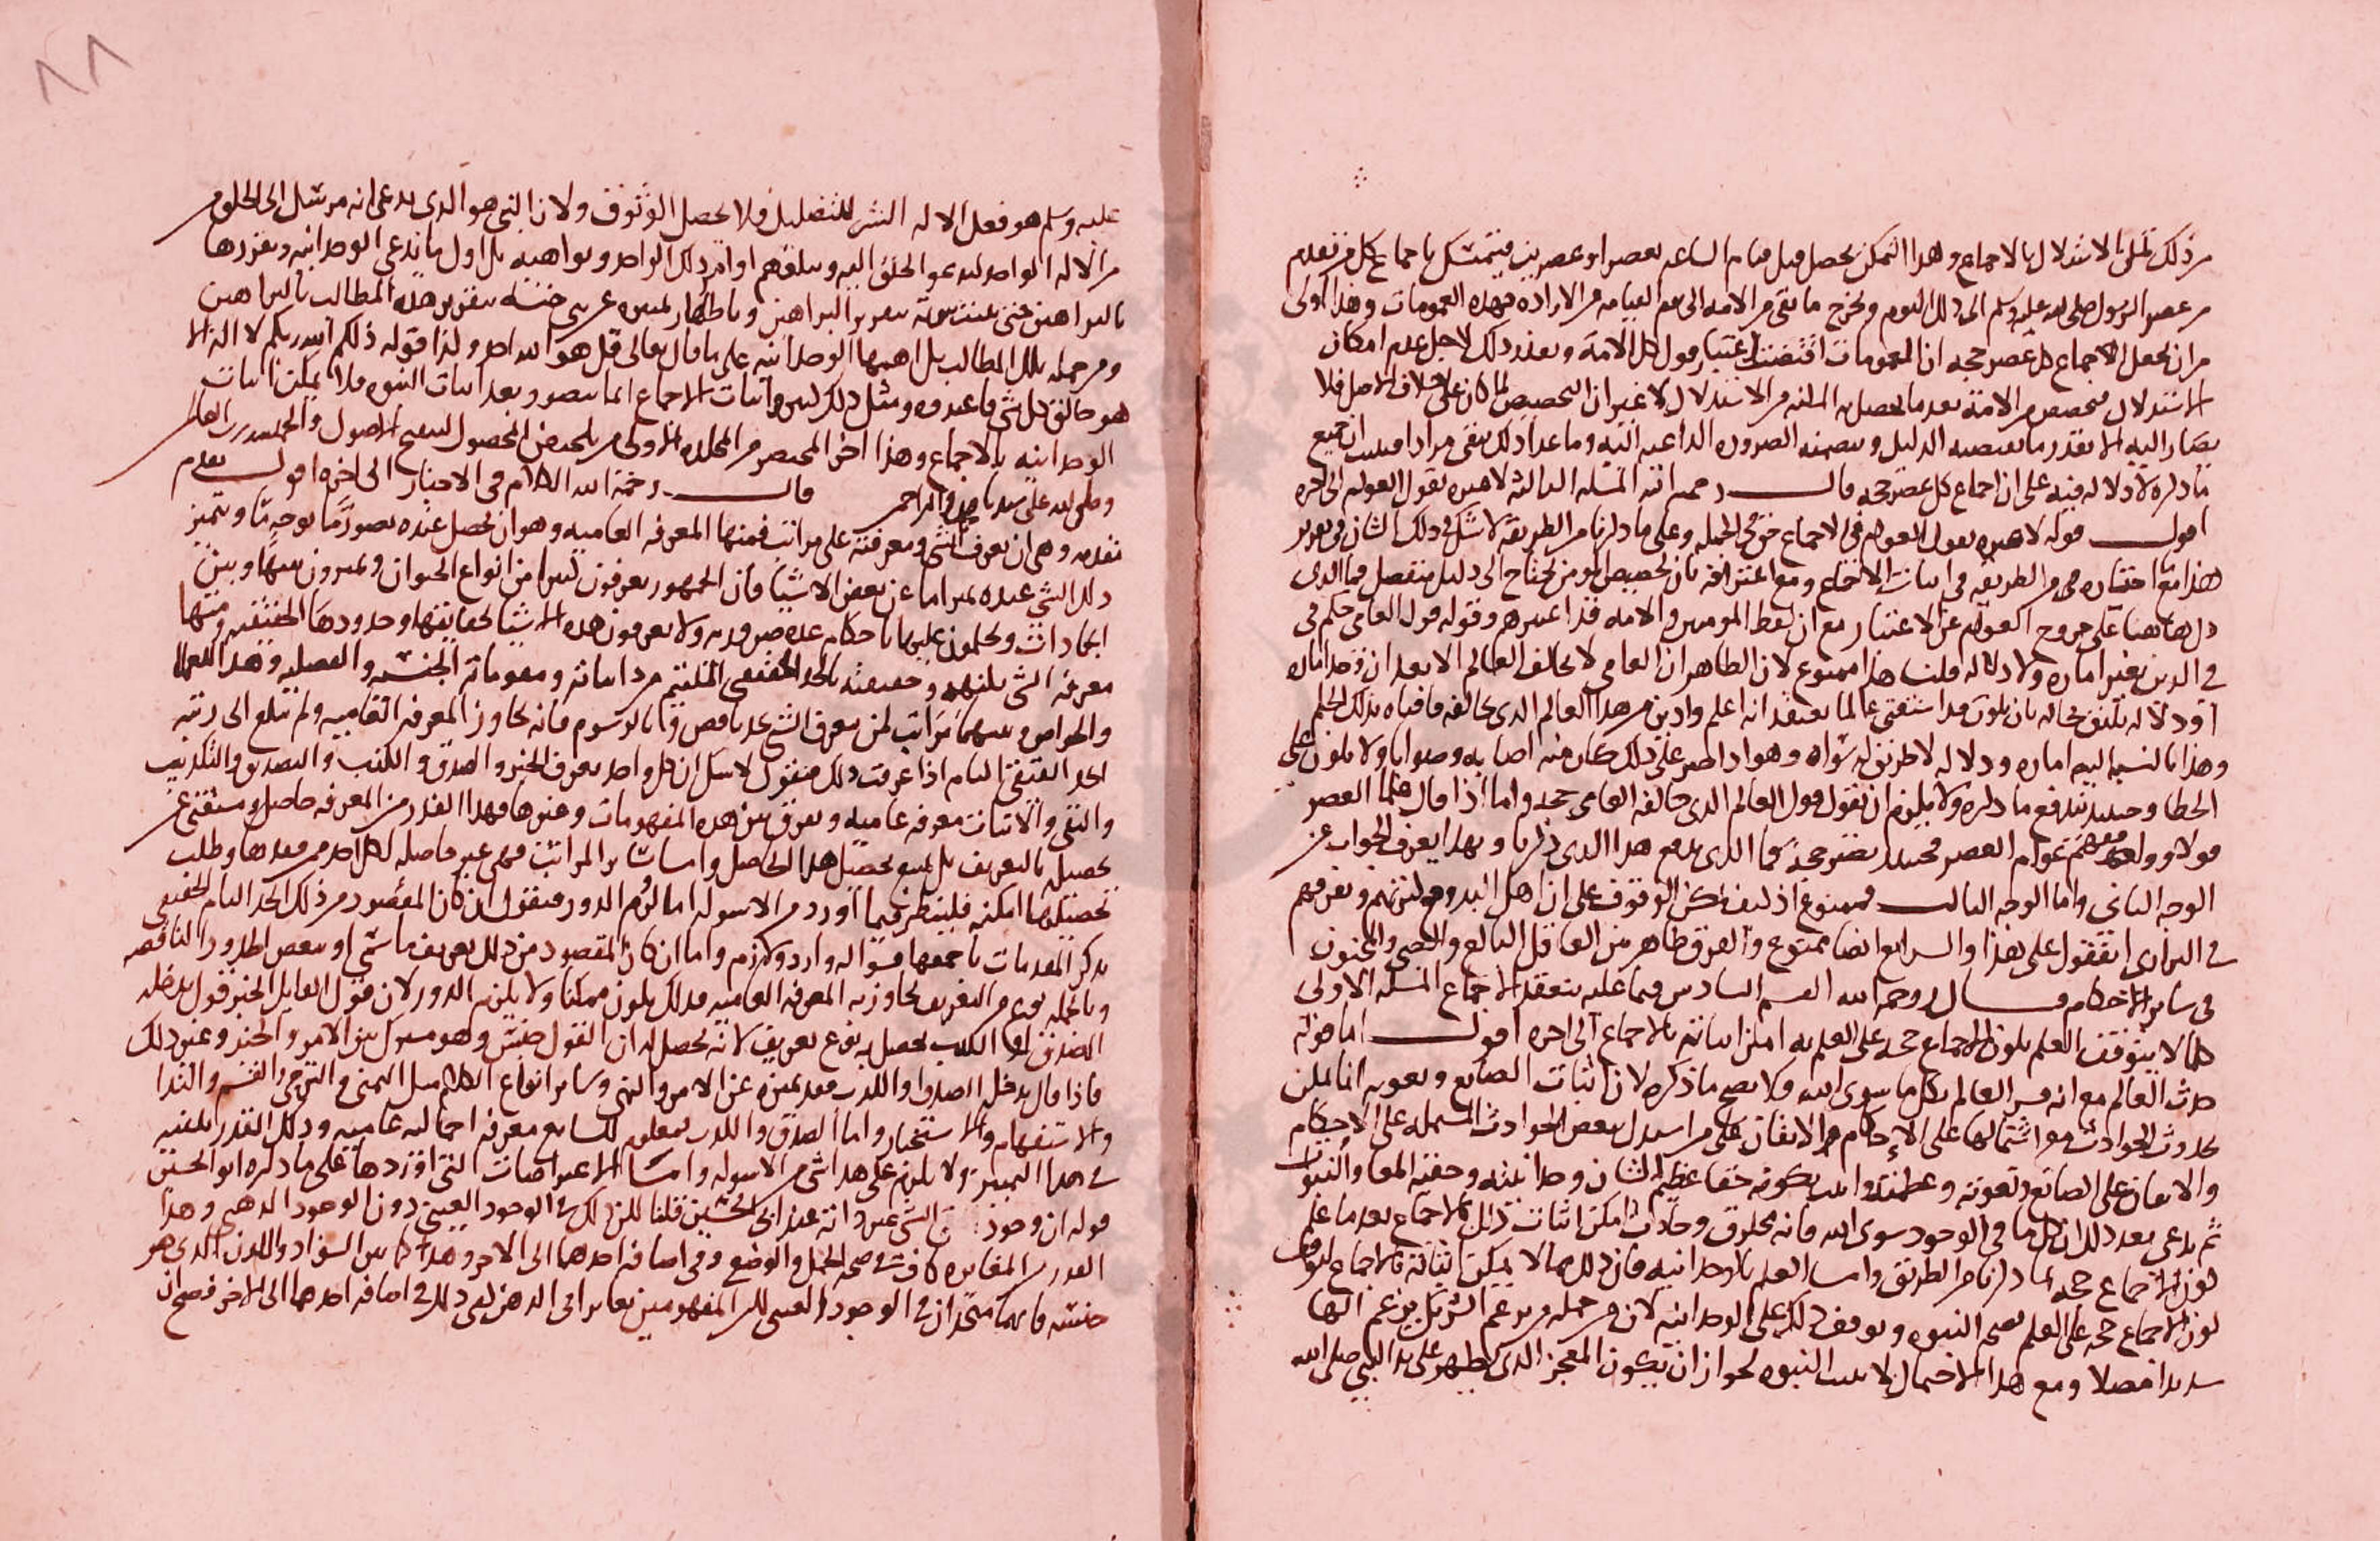 من ذلك تمكن الاستدلال بالاجماع وهذا التمكن يحصل قبل قيام الساعة بعصر او عصرين فيتمسك باجماع كل من تقدم
من عصر الرسول صلى الله عليه وسلم الى ذلك اليوم ويخرج ما بقي من الامة الى يوم القيامة من الارادة بهذه العمومات وهذا اولى
من ان يجعل الاجماع كل عصر حجة ان العمومات اقتضت اعتبار قول كل الامة وبعد ذلك لاجل عدم امكان
الاستدلال فيخصص من الامة بعد ما يحصل به المكنة من الاستدلال لا غير ان التخصيص لما كان على خلاف الاصل فلا
يصار اليه الا بقدر ما يقتضيه الدليل وبضمنه الضرورة الداعية اليه وما عدا ذلك يبقى مرادا فليس ان جميع
ما ذكره لا دلالة فيه على ان اجماع كل عصر حجة قال رحمه الله المسئلة الثالثة لا عبرة بقول العوام الى اخره
اقول قوله لا عبرة بقول العوام في الاجماع حق في الجملة وعلى ما ذكرنا من الطريقة لا شك في ذلك الشان في تقرير
هذا مع اختياره في الطريقة في اثبات الاجماع ومع اعترافه بان تخصيص المومنين يحتاج الى دليل منفصل فما الذي
دل هاهنا على خروج العوام عن الاعتبار مع ان لفظ المومنين والامة قد اعتبرهم وقوله قول العامي حكم في
في الدين بغير امارة ولا دلالة قلنا هذا ممنوع لان الظاهر ان العامي لا يخالف العالم الا بعد ان وجد امارة
او دلالة تليق بحاله بان يكون قد استفتى عالما يعتقد انه اعلم وادين من هذا العالم الذي خالفه فافتاه بذلك الحكم
وهذا بالنسبة اليه امارة ودلالة لا طريق له سواه وهو اذا اصر على ذلك كان منه اصابة وصوابا ولا يكون على
الخطا وحينئذ يندفع ما ذكره ولا يلزم ان نقول قول العالم الذي خالفه العامي حجة واما اذا قال علما العصر
قولا ووافقهم عوام العصر فحينئذ يصير حجة فما الذي يدفع هذا الذي ذكرنا وبهذا يعرف الجواب عن
الوجه الثاني واما الوجه الثالث فممنوع اذ كيف يمكن الوقوف على ان اهل البدو مع كثرتهم وتفرقهم
في البراري اتفقوا على هذا والرابع ايضا ممنوع والفرق ظاهر بين العاقل البالغ والصبي والمجنون
في ساير الاحكام قال رحمه الله القسم السادس فيما عليه ينعقد الاجماع المسئلة الاولى
كلما لا يتوقف العلم بكون الاجماع حجة على العلم به امكن اثباته بالاجماع الى اخره اقول اما قوله
حدث العالم مع انه فسر العالم بكل ما سوى الله فلا يصح ما ذكره لان اثبات الصانع ونعوته انما يمكن
بحدوث الحوادث مع اشتمالها على الاحكام والاتقان فكل من استدل ببعض الحوادث المشتملة على الاحكام
والاتقان على الصانع ونعوته وعظمته واثبت بكونه حقا عظيم الشان وحدانيته وحقية المعاد والنبوات
ثم يدعي بعد ذلك ان كل ما في الوجود سوى الله فانه مخلوق وحادث امكن اثبات ذلك بالاجماع بعد ما علم
كون الاجماع حجة بما ذكرنا من الطريق واما العلم بالوحدانية فان ذلك مما لا يمكن اثباته بالاجماع لتوقف
كون الاجماع حجة على العلم بصحة النبوة وتوقف ذلك على الوحدانية لان من جملة من يزعم الشريك من يزعم الها
شريرا مضلا ومع هذا الاحتمال لا يثبت النبوة لجواز ان يكون المعجز الذي يظهر على يد النبي صلى الله
٨٨
عليه وسلم هو فعل الاله الشرير للتضليل فلا يحصل الوثوق ولان النبي هو الذي يدعي انه مرسل الى الخلق
من الاله الواحد ليدعو الخلق اليه ويبلغهم اوامر ذلك الواحد ونواهيه بل اول ما يدعي الوحدانية ويقررها
بالبراهين حتى يثبت نبوته بتقرير البراهين وباظهار تميزه عن بني جنسه بتقرير هذه المطالب بالبراهين
ومن جملة تلك المطالب بل اهمها الوحدانية على ما قال تعالى قل هو الله احد ولذا قوله ذلكم الله ربكم لا اله الا
هو خالق كل شي فاعبدوه ومثل ذلك كثير واثبات الاجماع انما يتصور بعد اثبات النبوة فلا يمكن اثبات
الوحدانية بالاجماع وهذا اخر المختصر من المجلدة الاولى من تلخيص المحصول لتنقيح الاصول والحمد لله رب العالمين
وصلى الله على سيدنا محمد واله اجمعين قال رحمه الله الكلام في الاخبار الى اخره اقول نقدم
مقدمة وهي ان تعريف الشي ومعرفته على مراتب فمنها المعرفة العامية وهو ان يحصل عنده بصورة ما بوجه ما ويتميز
ذلك الشي عنده تميزا ما عن بعض الاشيا فان الجمهور يعرفون كثيرا من انواع الحيوان ويميزون بينها وبين
الجمادات ويحكمون عليها باحكام عدة ضرورية ولا يعرفون هذه الاشيا بحقايقها وحدودها الحقيقية ومنها
معرفة الشي بكنهه وحقيقته بالحد الحقيقي الملتئم من ذاتياته ومقوماته الجنسية والفصلية وهذا للعلما
والخواص وبينهما مراتب كمن يعرف الشي بحد ناقص واما بالرسوم فانه يجاوز المعرفة العامية ولم يبلغ الى رتبة
الحد الحقيقي التام اذا عرفت ذلك فنقول لا شك ان كل واحد يعرف الخبر والصدق والكذب والتصديق والتكذيب
والنفي والاثبات معرفة عامية ويفرق بين هذه المفهومات وغيرها فهذا القدر من المعرفة حاصل ومستغني عن
تحصيله بالتعريف بل يمتنع تحصيل هذا الحاصل واما ساير المراتب فهي غير حاصلة لكل احد فمن فقدها وطلب
تحصيلها امكنه فلينظر فيما اورد من الاسولة اما لزوم الدور فنقول ان كان المقصود من ذلك الحد التام الحقيقي
بذكر المقدمات باجمعها فسواله وارد ولازم واما ان كان المقصود من ذلك تعريف ما شي او ببعض الحدود الناقصة
وبالجملة نوع من التعريف يجاوز به المعرفة العامية فذلك يكون ممكنا ولا يلزم الدور لان قول القايل الخبر قول يدخله
الصدق او الكذب يحصل به نوع تعريف لانه يحصل له ان القول جنس وهو مشترك بين الامر والخبر وغير ذلك
فاذا قال يدخله الصدق او الكذب فقد تميزه عن الامر والنهي وساير انواع الكلام مثل التمني والترجي والقسم والندا
والاستفهام والاستخبار واما الصدق والكذب فمعلوم للسامع معرفة اجمالية عامية وذلك القدر يكفيه
في هذا التمييز ولا يلزم على هذا شي من الاسولة واما الاعتراضات التي اوردها على ما ذكره ابو الحسين
قوله ان وجود الشي عين ذاته عند ابي الحسين قلنا لكن ذلك في الوجود العيني دون الوجود الذهني وهذا
القدر من المغايرة كاف في صحة الحمل والوضع وفي اضافة احدهما الى الاخر وهذا كما بين السواد واللون الذي هو
جنسه فانهما متحدان في الوجود العيني لكن المفهومين تغايرا في الذهن كفى ذلك في اضافة احدهما الى الاخر فصح ان